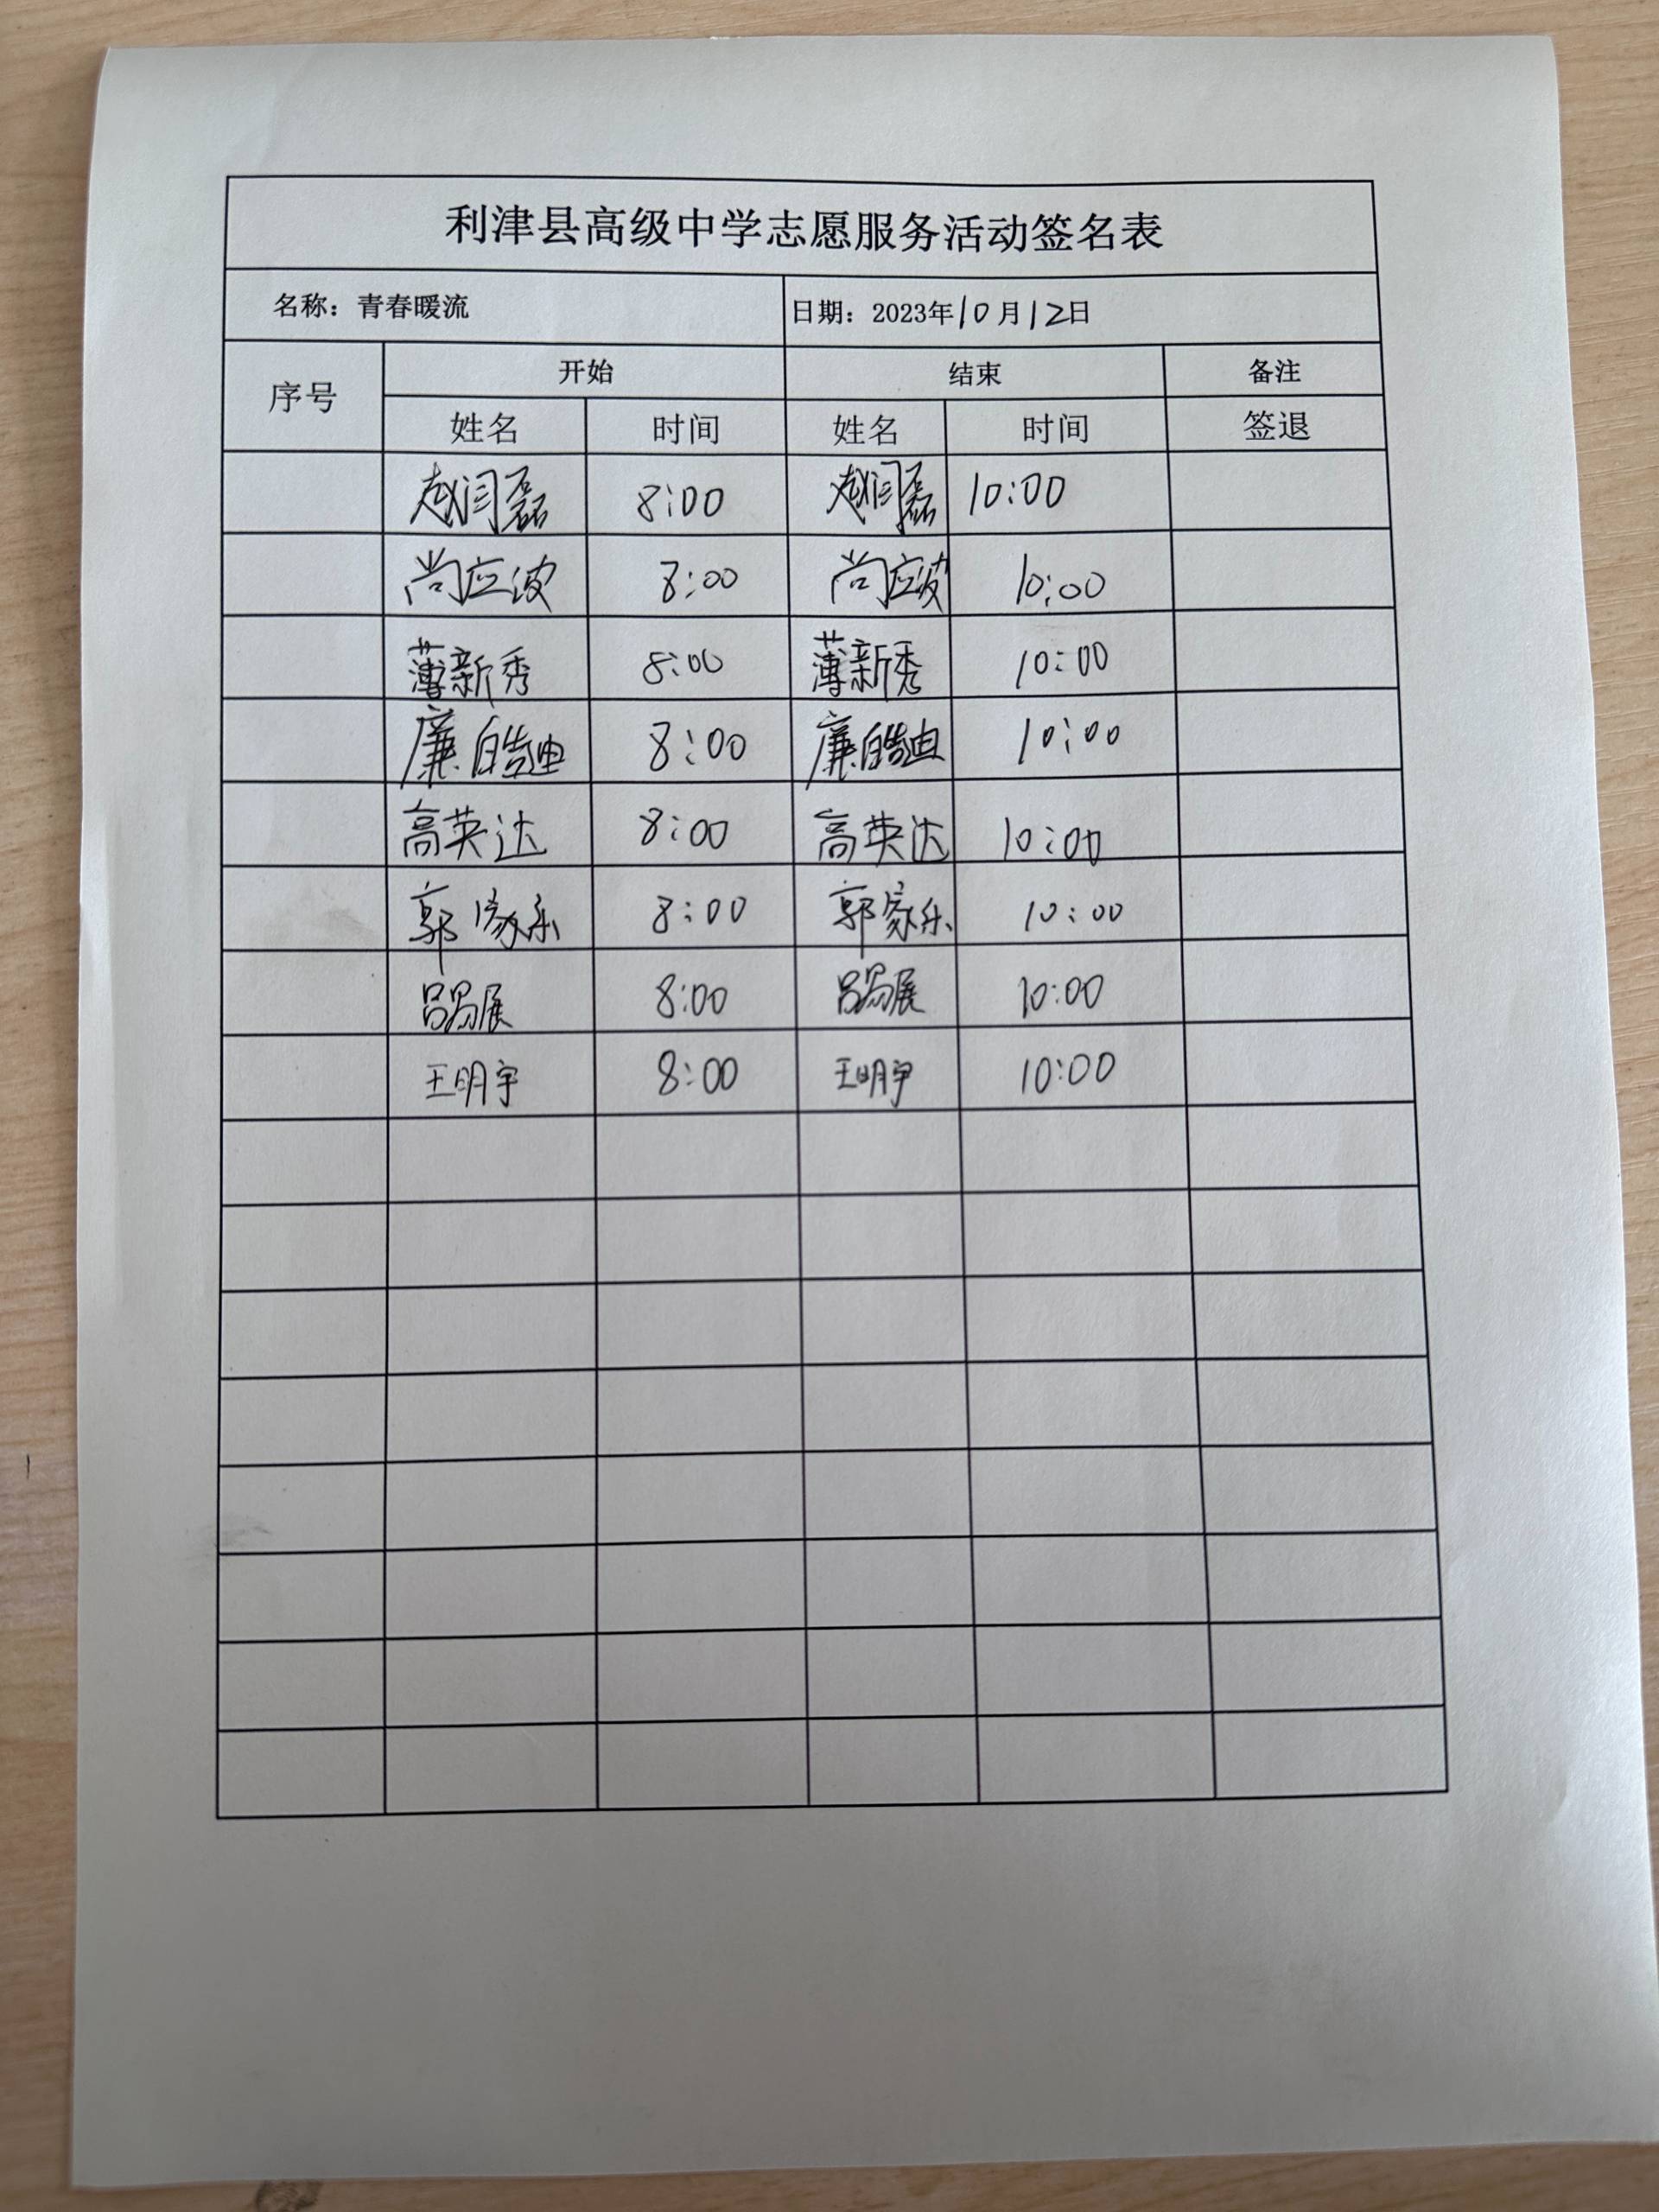 利津县高级中学志愿服务活动签名表
名称：青春暖流 日期：2023年10月12日
序号 开始 结束 备注
姓名 时间 姓名 时间 签退
赵闫磊 8:00 赵闫磊 10:00
尚应波 8:00 尚应波 10:00
薄新秀 8:00 薄新秀 10:00
廉皓迪 8:00 廉皓迪 10:00
高英达 8:00 高英达 10:00
郭家乐 8:00 郭家乐 10:00
吕易展 8:00 吕易展 10:00
王明宇 8:00 王明宇 10:00